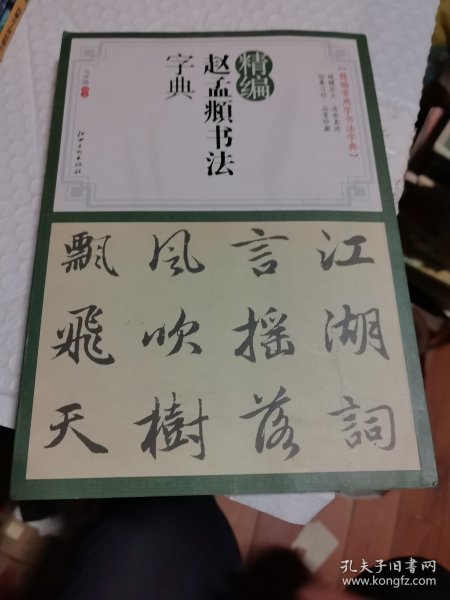 《精编常用字书法字典》
精编
赵孟頫书法
字典
江西美术出版社
江湖詞
言摇落
風吹樹
飄飛天
孔夫子旧书网
www.kongfz.com